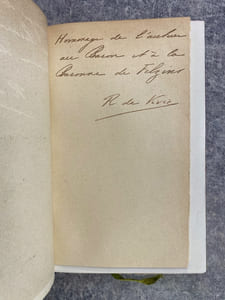 Hommage de l'auteur
au Baron et à la
Baronne de
R de